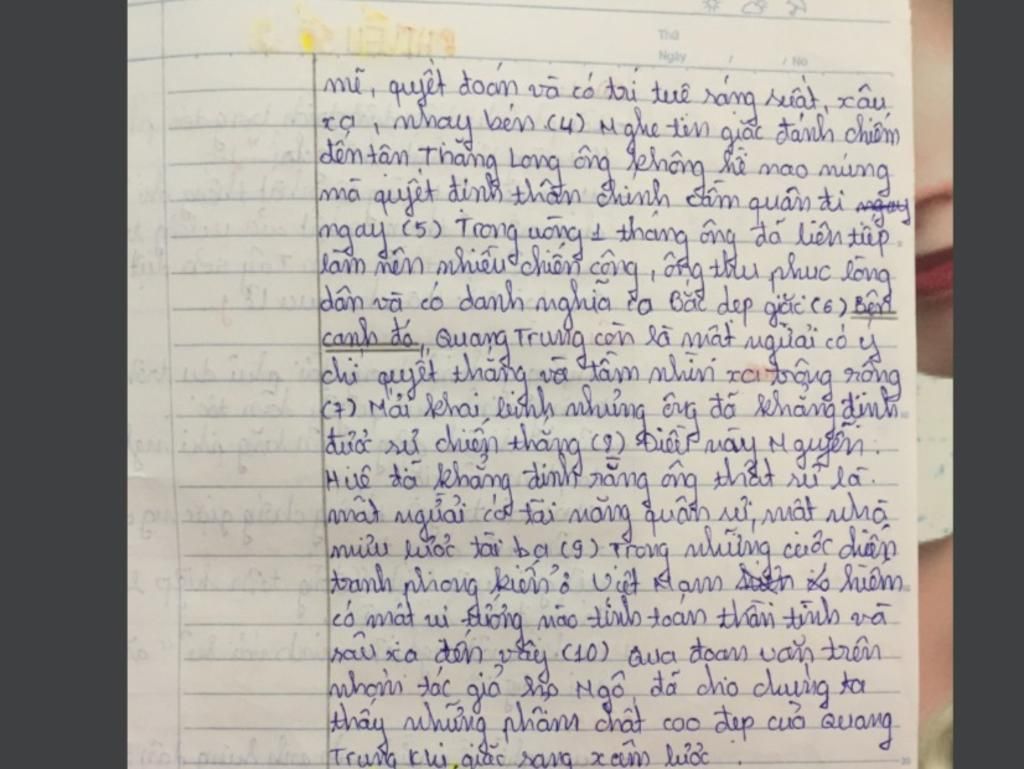 PHIẾU SỐ 2
Thứ
Ngày / / No
mẽ, quyết đoán và có trí tuệ sáng suốt, xâu
xa, nhạy bén.(4) Nghe tin giặc đánh chiếm
đến tận Thăng Long ông không hề nao núng
mà quyết định thân chinh cầm quân đi ngay
ngay (5) Trong uòng 1 tháng ông đã liên tiếp
làm nên nhiều chiến công, ông thu phục lòng
dân và có danh nghĩa ra Bắc dẹp giặc (6) Bên
cạnh đó, Quang Trung còn là một người có ý
chí quyết thắng và tầm nhìn xa trông rộng
(7) Mới khai binh nhưng ông đã khẳng định
được sự chiến thắng (8) Điều này Nguyễn
Huệ đã khẳng định rằng ông thật sự là
một người có tài năng quân sự, một nhà
mưu lược tài ba (9) Trong những cuộc chiến
tranh phong kiến ở Việt Nam hiếm
có một vị tướng nào tính toán thần tình và
sâu xa đến vậy (10) Qua đoạn văn trên
nhóm tác giả Ngô đã cho chúng ta
thấy những phẩm chất cao đẹp của Quang
Trung khi giặc sang xâm lược.